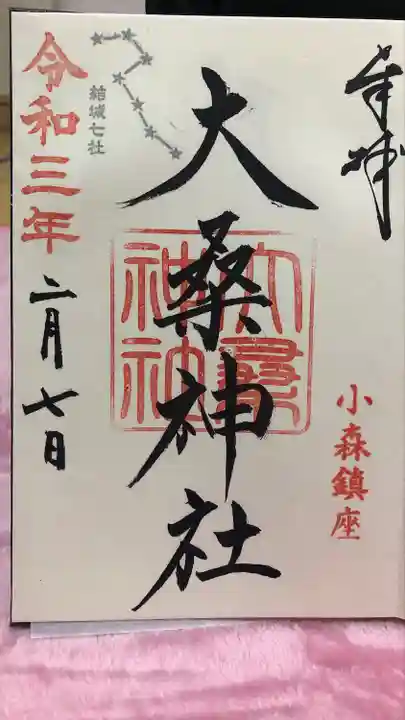 奉拝
小森鎮座
大桑神社
大桑
神社
結城七社
令和三年
二月七日